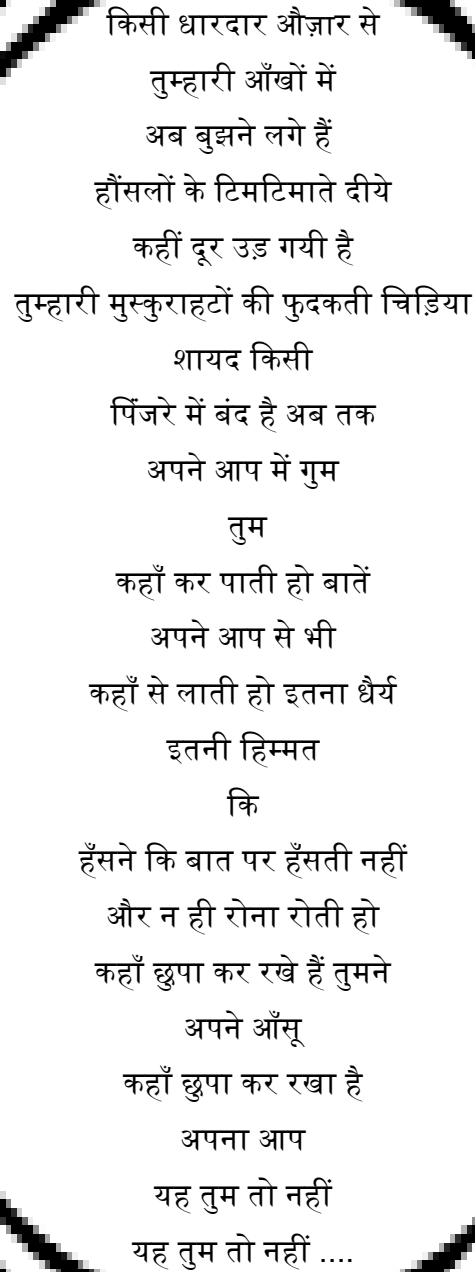 किसी धारदार औज़ार से
तुम्हारी आँखों में
अब बुझने लगे हैं
हौंसलों के टिमटिमाते दीये
कहीं दूर उड़ गयी है
तुम्हारी मुस्कुराहटों की फुदकती चिड़िया
शायद किसी
पिंजरे में बंद है अब तक
अपने आप में गुम
तुम
कहाँ कर पाती हो बातें
अपने आप से भी
कहाँ से लाती हो इतना धैर्य
इतनी हिम्मत
कि
हँसने कि बात पर हँसती नहीं
और न ही रोना रोती हो
कहाँ छुपा कर रखे हैं तुमने
अपने आँसू
कहाँ छुपा कर रखा है
अपना आप
यह तुम तो नहीं
यह तुम तो नहीं ....